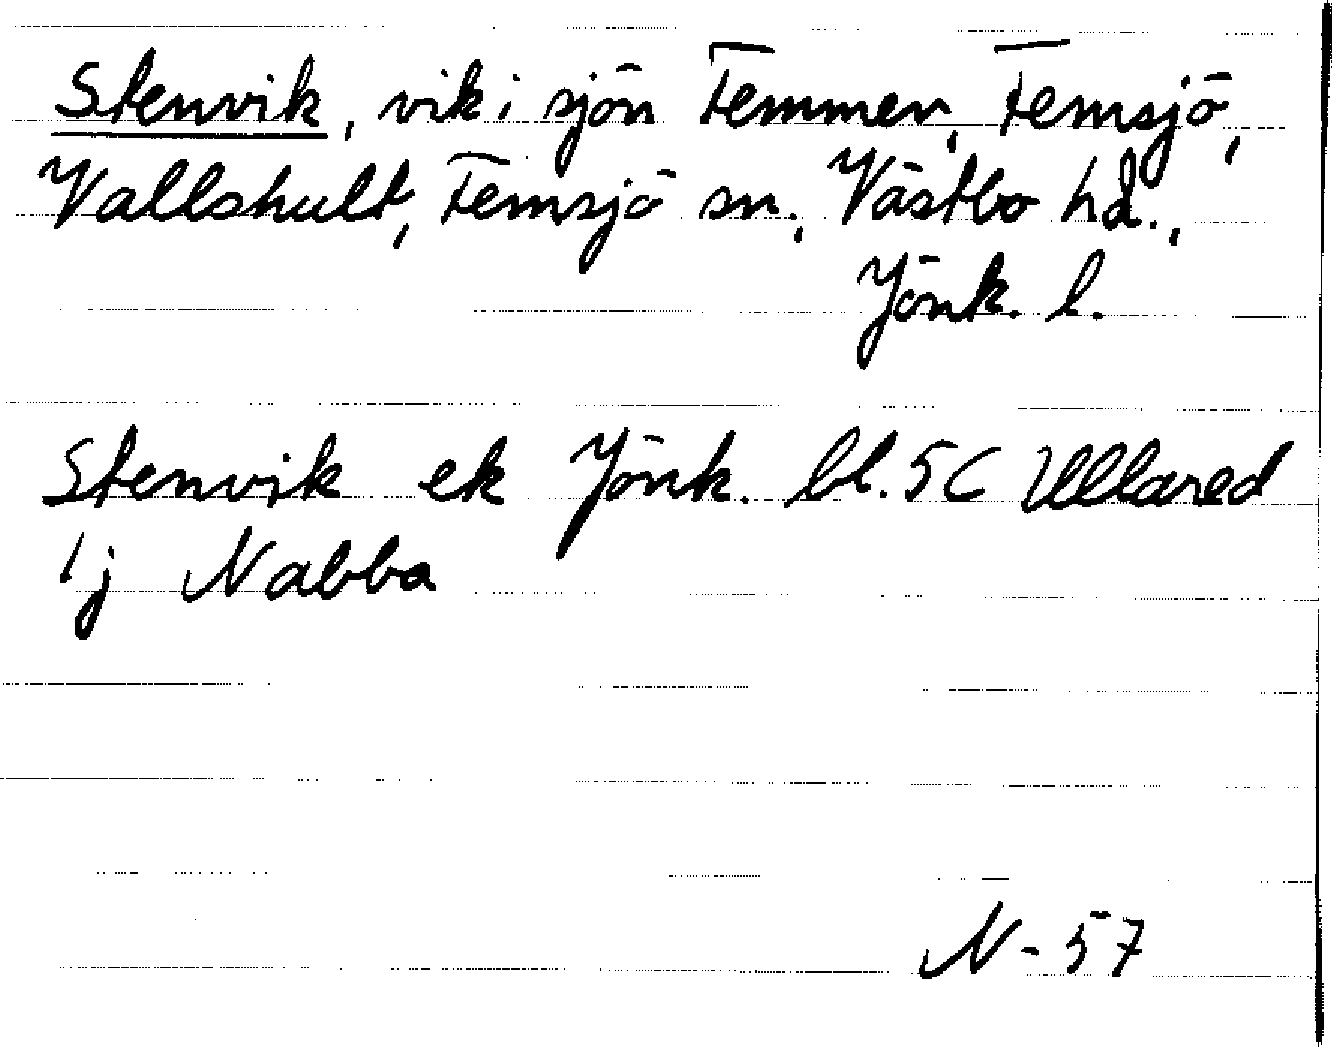 Stenvik, vik i sjön Femmen, Femsjö,
Vallshult, Femsjö sn., Västbo hd.,
Jönk. l.
Stenvik ek Jönk. bl. 5C Ullared
1j Nabba
N-57